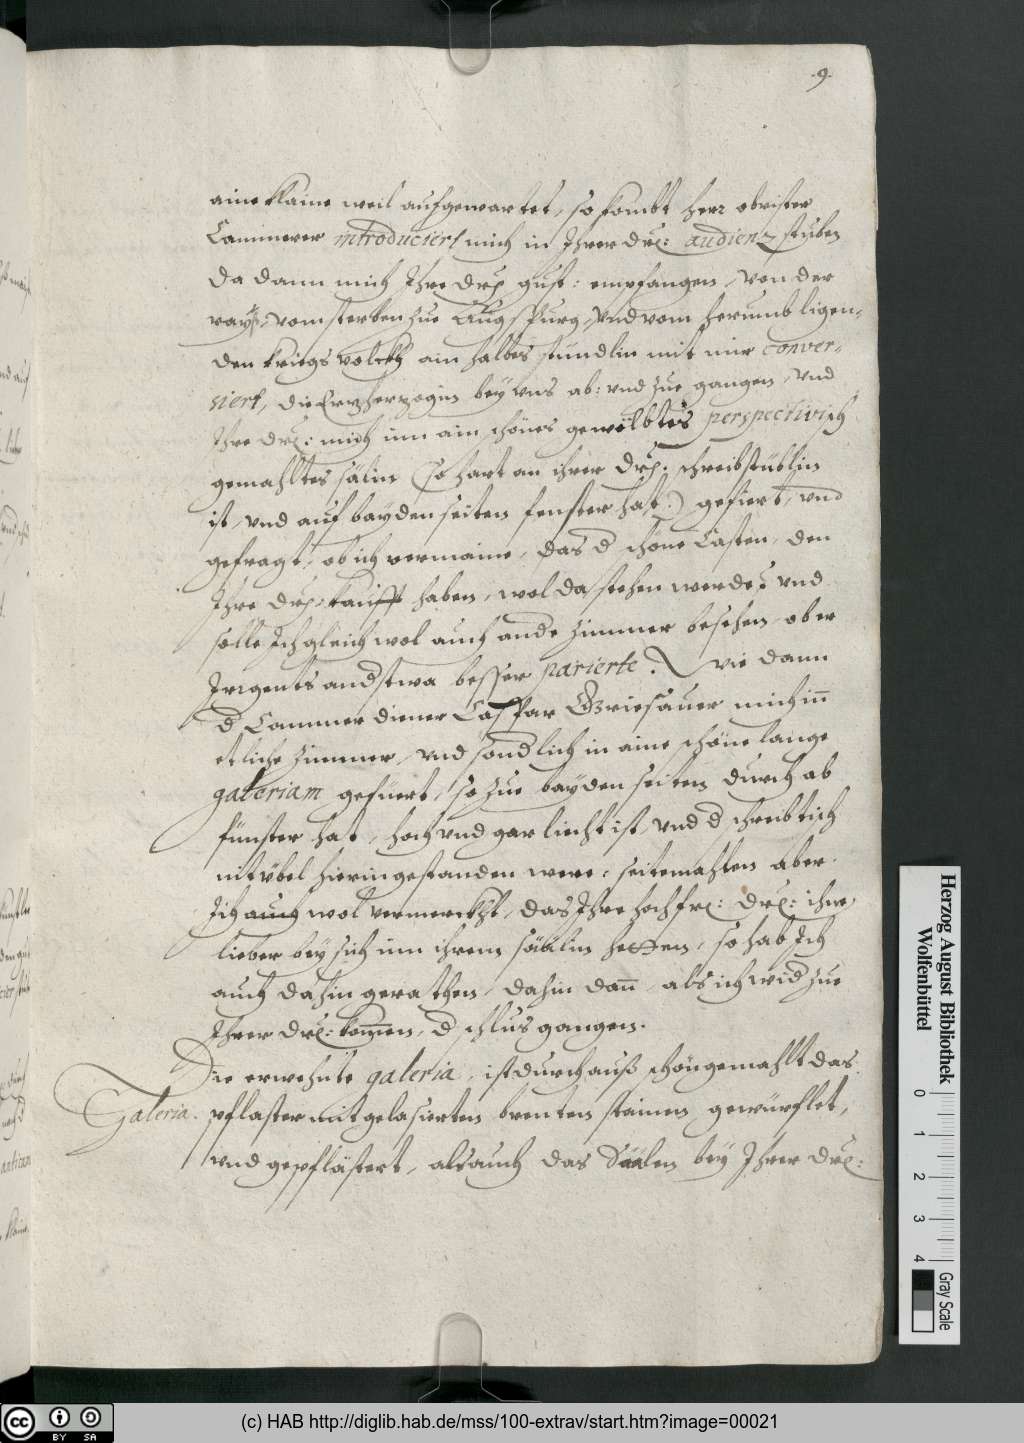 .9.
aine klaine weil aufgewartet, so kombt herr obrister
Cammerer introduciert mich in Ihrer Drl: audientz stuben
da dann mich Ihre Drl gust: empfangen, von der
rays, vom sterben zue Augspurg, vnd vom herumb ligen-
den kriegs volckh ain halbes stündlin mit mir conver-
siert, die Ertzherzogin bey vns ab: vnd zue gangen, vnd
Ihre Drl: mich inn ain schönes gewölbtes perspectivisch
gemahltes sälin (so hart an ihrer Drl: schreibstüblin
ist, vnd auf bayden seiten fenster hat.) gefiert, vnd
gefragt, ob ich vermaine, das d schöne Casten, den
Ihre Drl: kaufft haben, wol da stehen werde? vnd
solle Ich gleich wol auch ande zimmer besehen, ob er
Irigents andstwa besser parierte? Wie dann
d Cammerdiener Caspar Griesauer mich in
etliche zimmer, vnd sondlich in aine schöne lange
galeriam gefüert, so zue bayden seiten durch ab
fünster hat, hoch vnd gar liecht ist, vnd d schreibtisch
nit übel hierin gestanden were, seitemahlen aber
Ich auch wol vermerckht, das Ihre hochfr: Drl: ihne
lieber bey sich inn ihrem säälin hetten, so hab Ich
auch dahin gerathen, dahin dan, als ich wid zue
Ihrer Drl: komen, d schlus gangen.
Die erwehnte galeria, ist durchauß schön gemahlt das
Galeria. pflaster mit gelasierten brenten stainen gewürflet,
vnd gepflästert, als auch das Säälen bey Ihrer Drl:
Herzog August Bibliothek
Wolfenbüttel
0 1 2 3 4
Gray Scale
(c) HAB http://diglib.hab.de/mss/100-extrav/start.htm?image=00021
cc BY SA